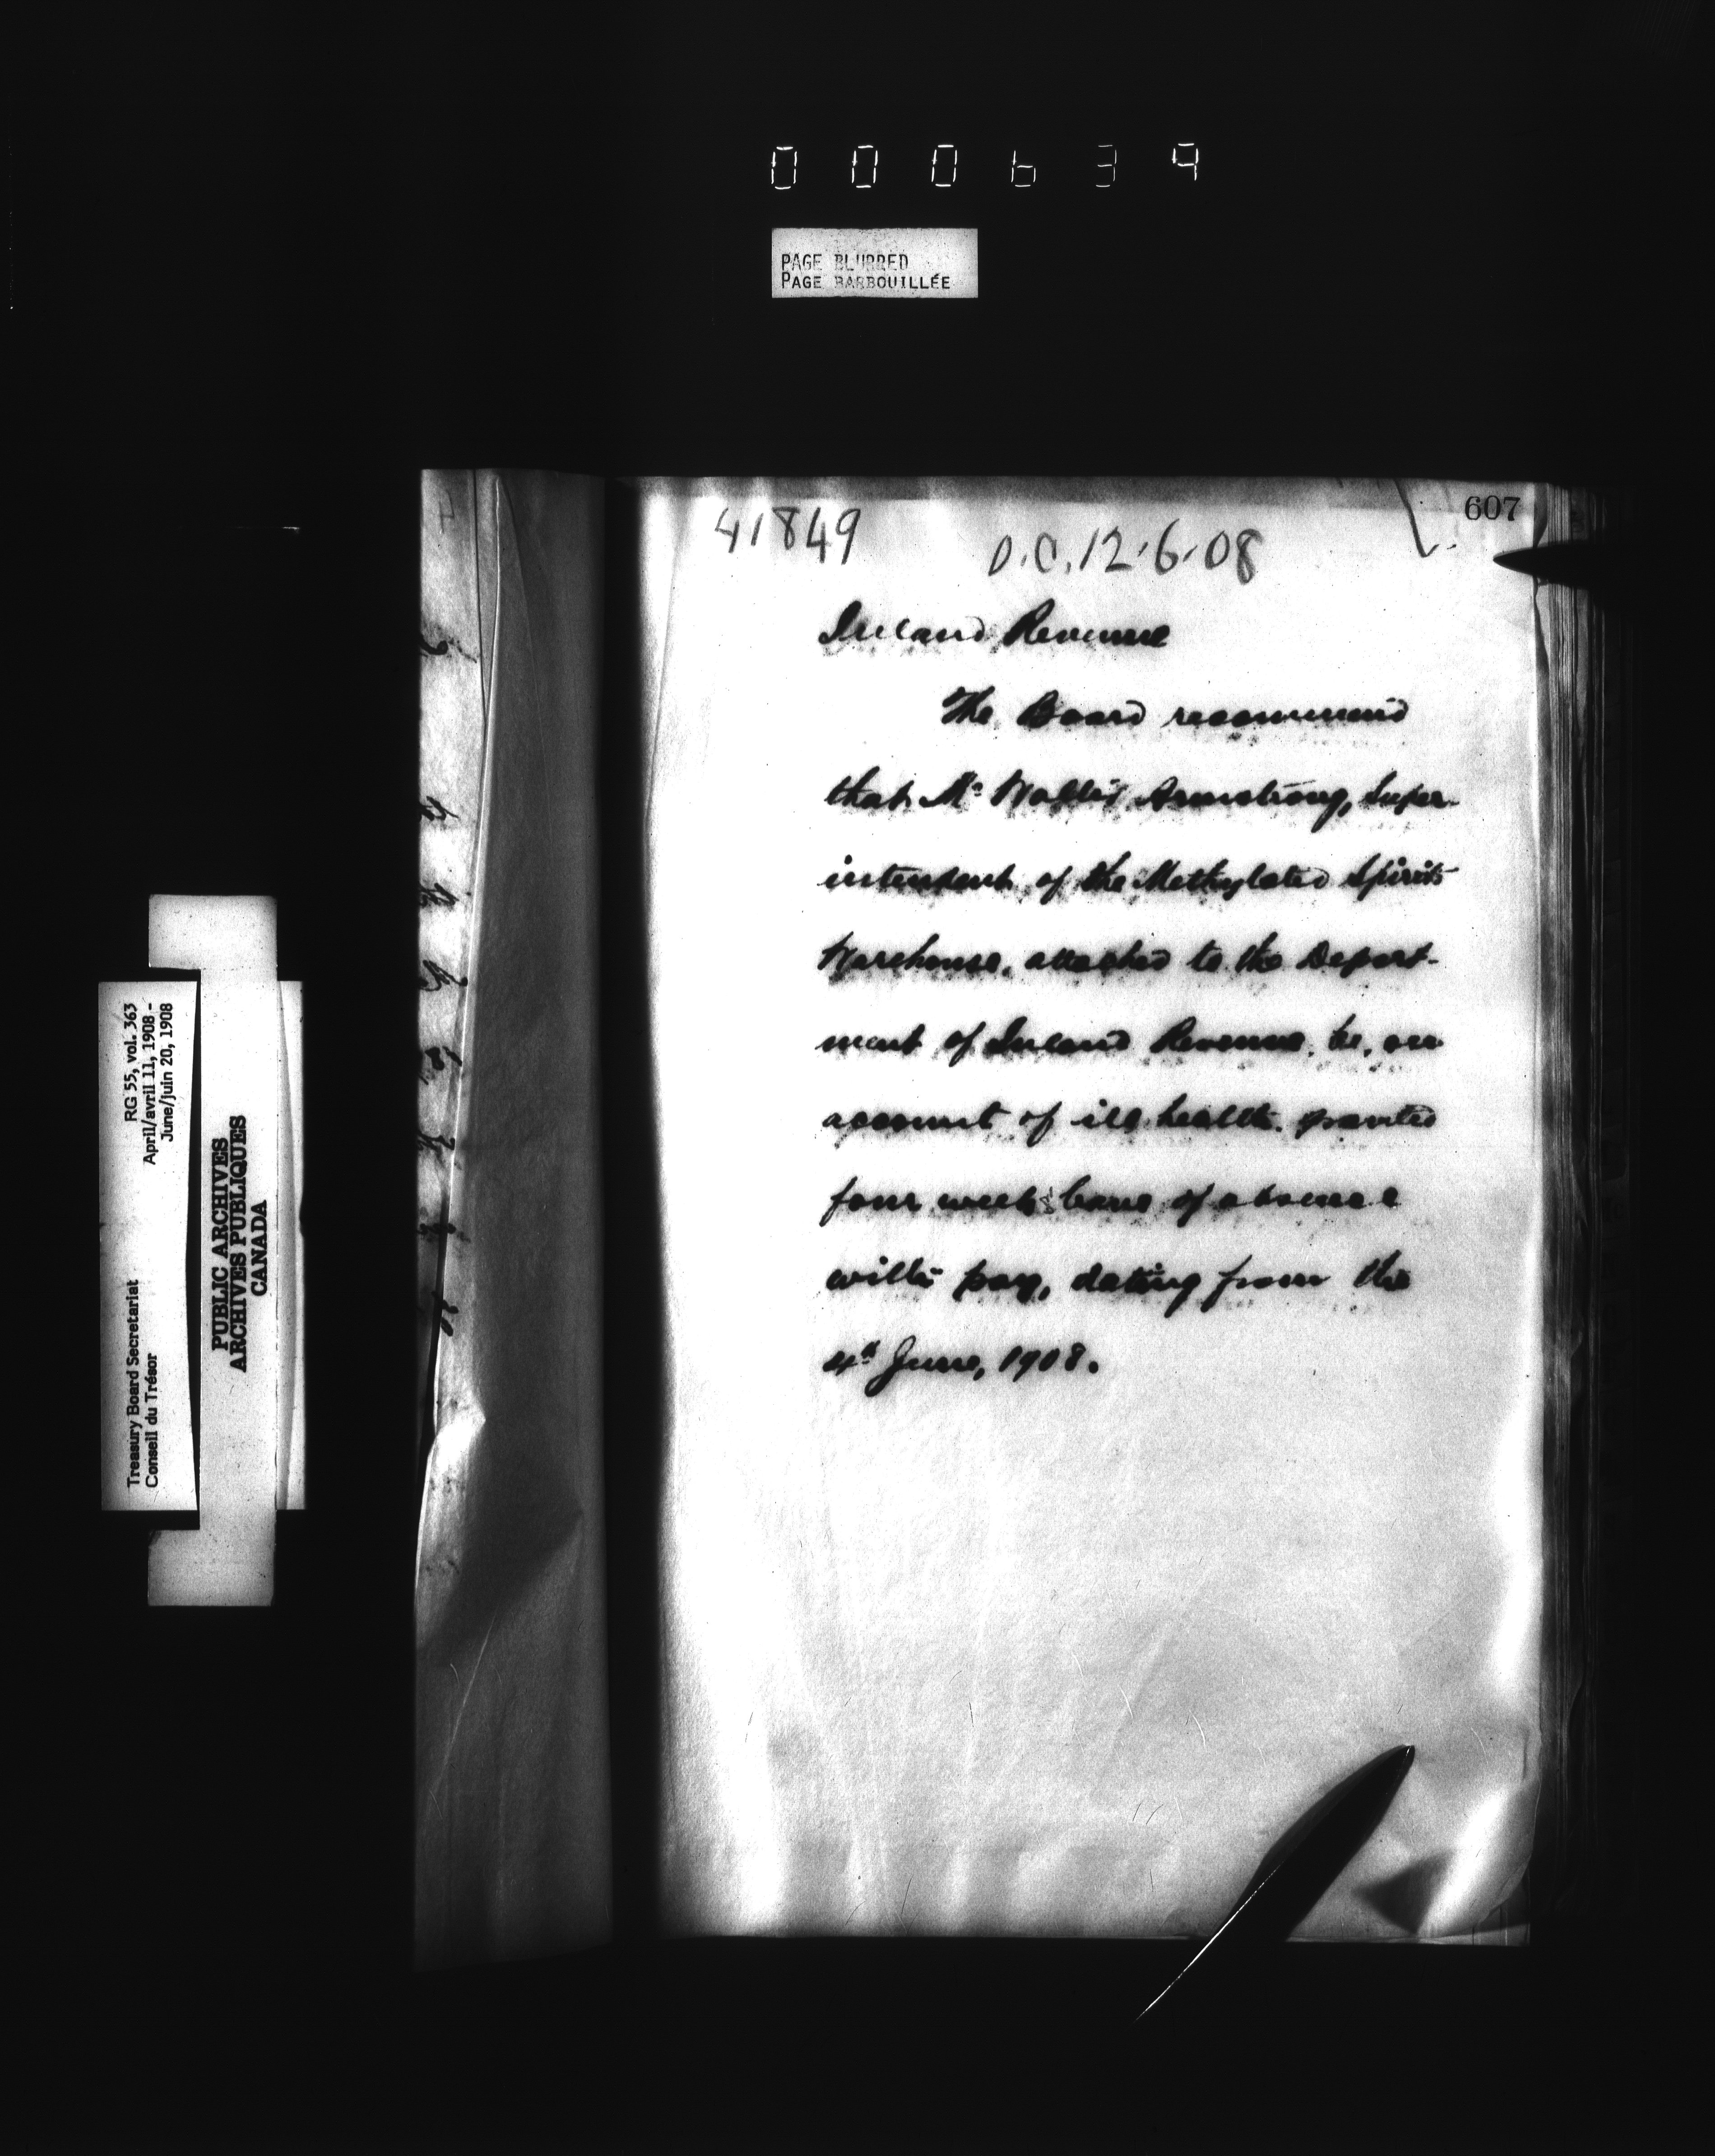 000639
PAGE BLURRED
PAGE BARBOUILLÉE
607
41849
O.C. 12.6.08
Inland Revenue
The Board recommend
that Mr Armstrong, Super-
intendent of the Methylated Spirits
Warehouse, attached to the Depart-
ment of Inland Revenue, be, on
account of ill health, granted
four weeks leave of absence
with pay, dating from the
4th June, 1908.
RG 55, vol. 363
April/avril 11, 1908 -
June/juin 20, 1908
Treasury Board Secretariat
Conseil du Trésor
PUBLIC ARCHIVES
ARCHIVES PUBLIQUES
CANADA